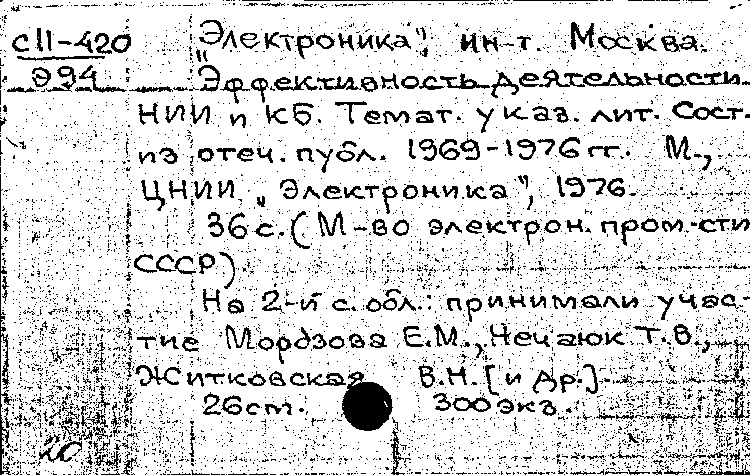 С11-420
Э94
"Электроника", ин-т. Москва.
Эффективность деятельности
НИИ и КБ. Темат. указ. лит. Сост.
из отеч. публ. 1969-1976 гг. М.,
ЦНИИ „Электроника", 1976.
36 с. (М-во электрон. пром-сти
СССР)
На 2-й с. обл.: принимали учас-
тие Мордзова Е.М., Нечаюк Т.В.,
Житковская В.Н. [и др.].
26 cm. 300 экз.
20